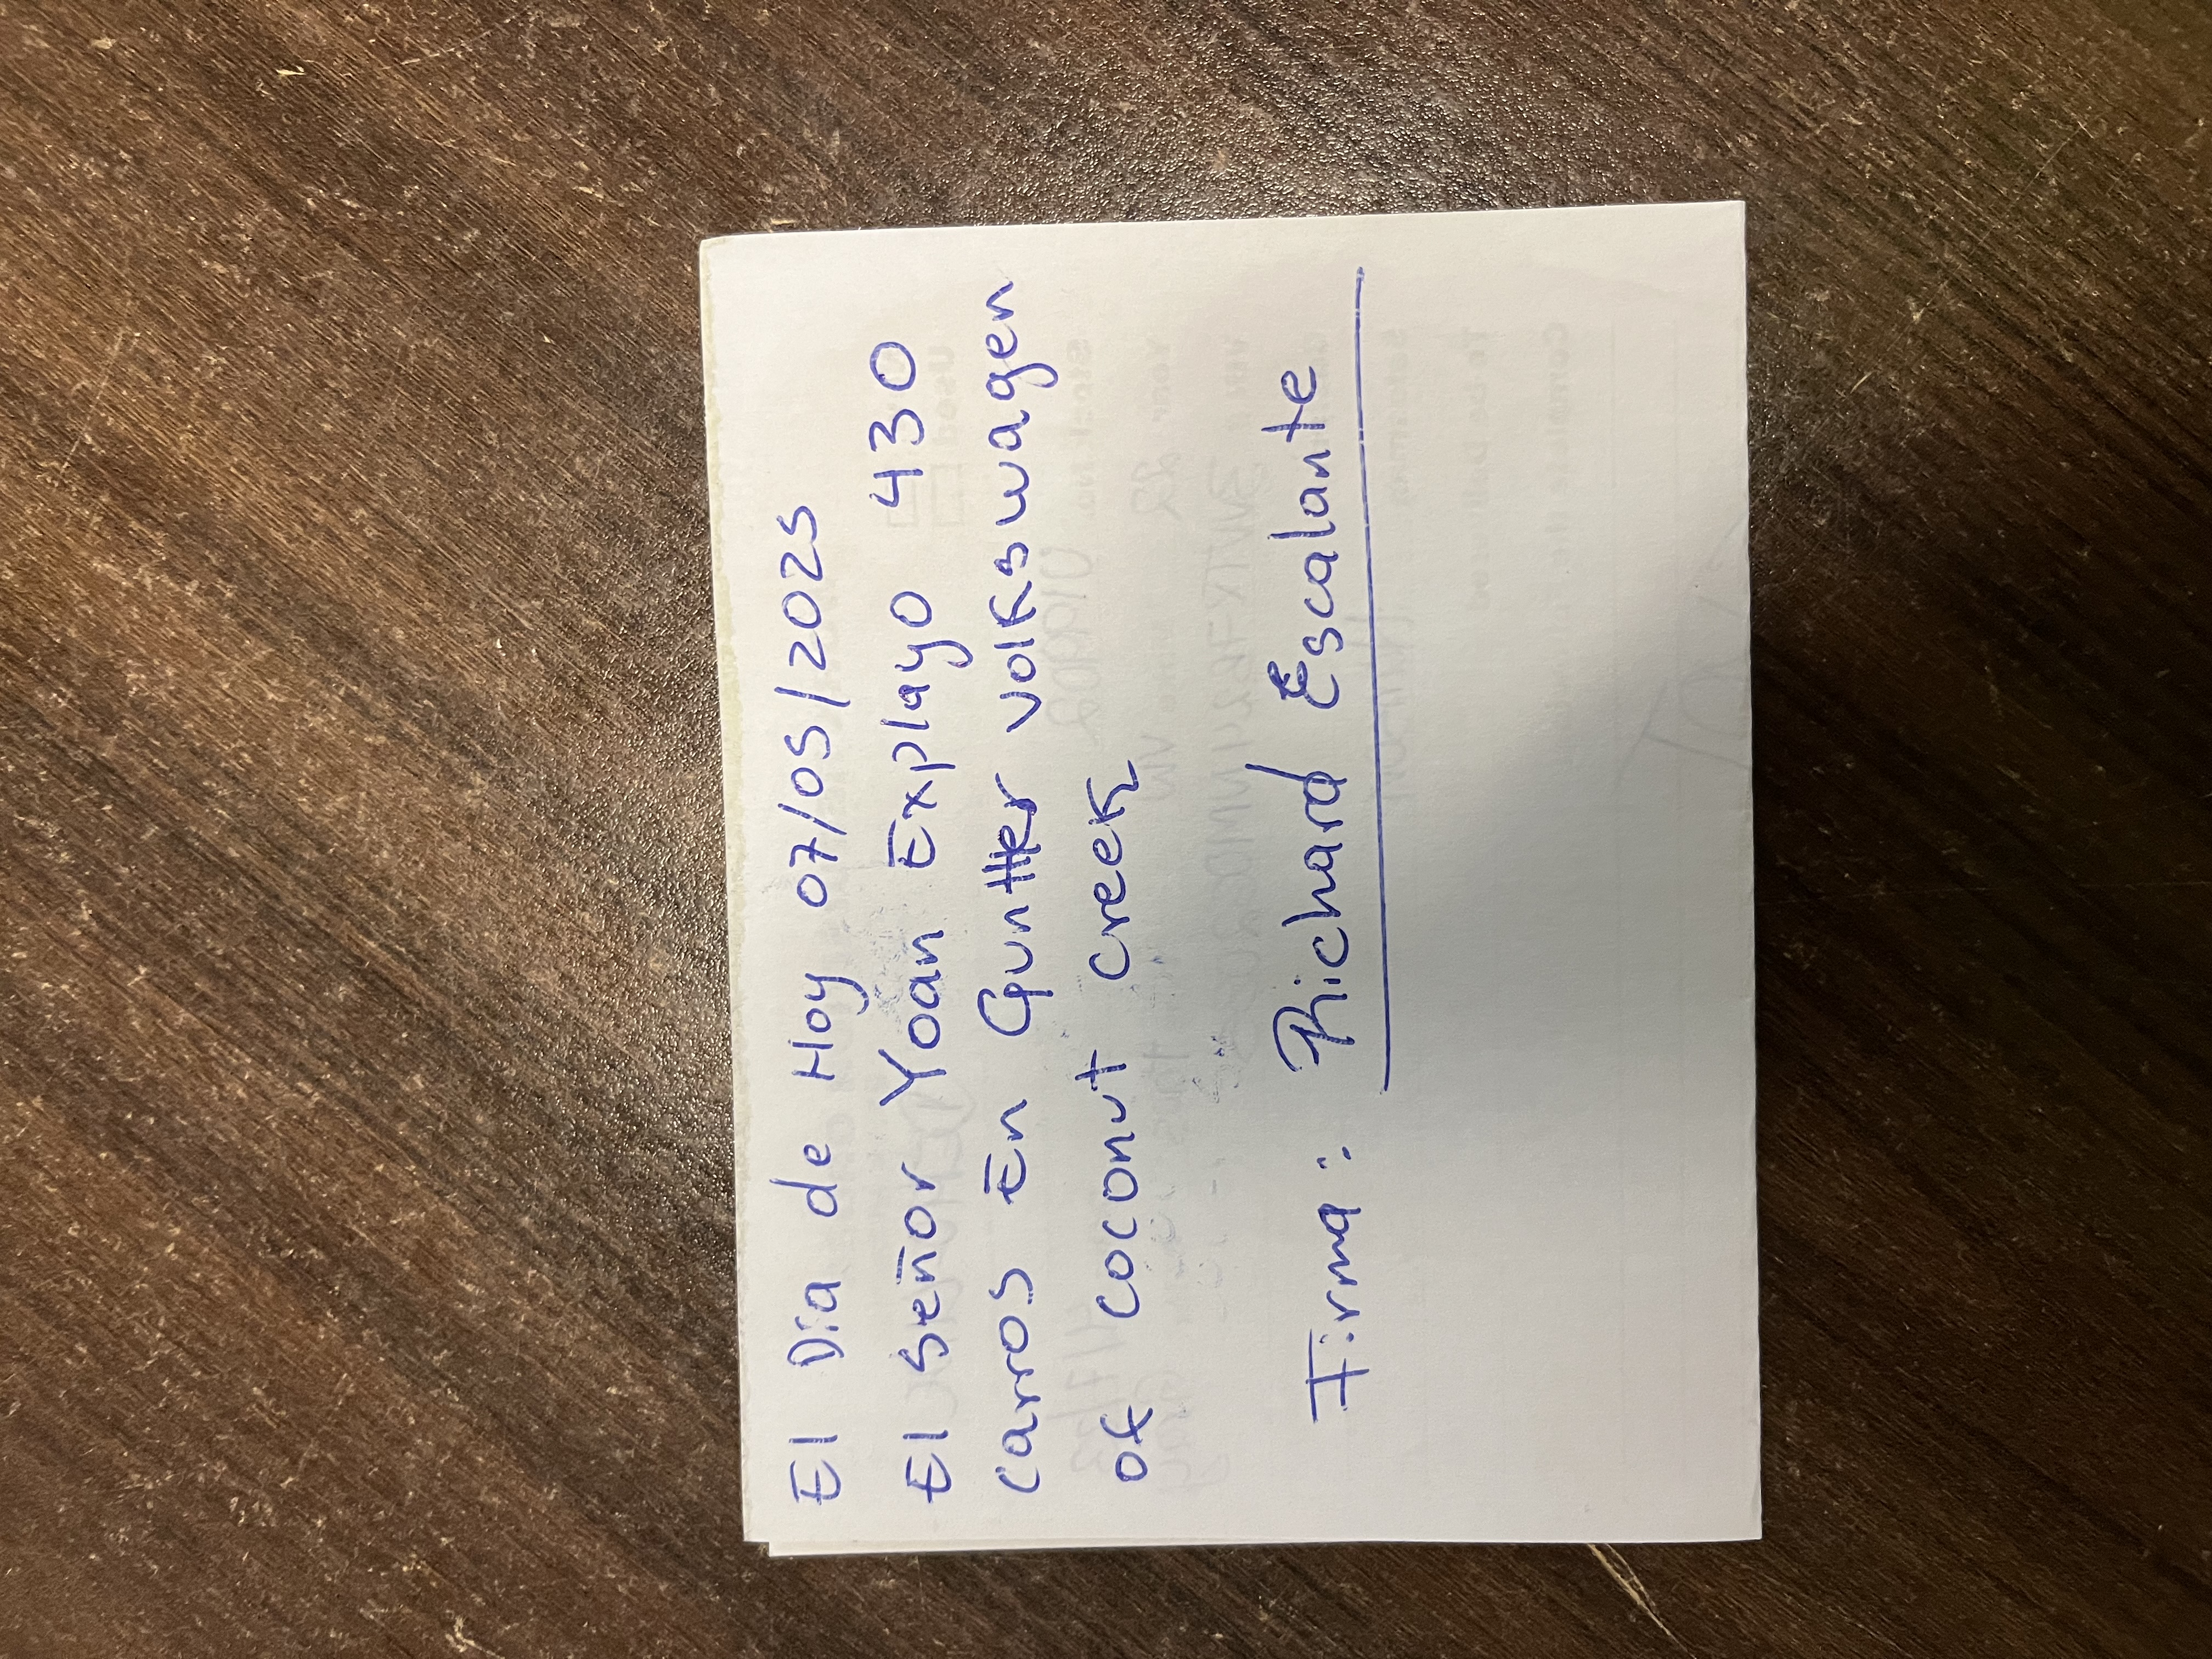 El Dia de Hoy 07/05/2025
El Señor Yoan Explayo 430
carros En Gunther volkswagen
of coconut creek
Firma: Richard Escalante